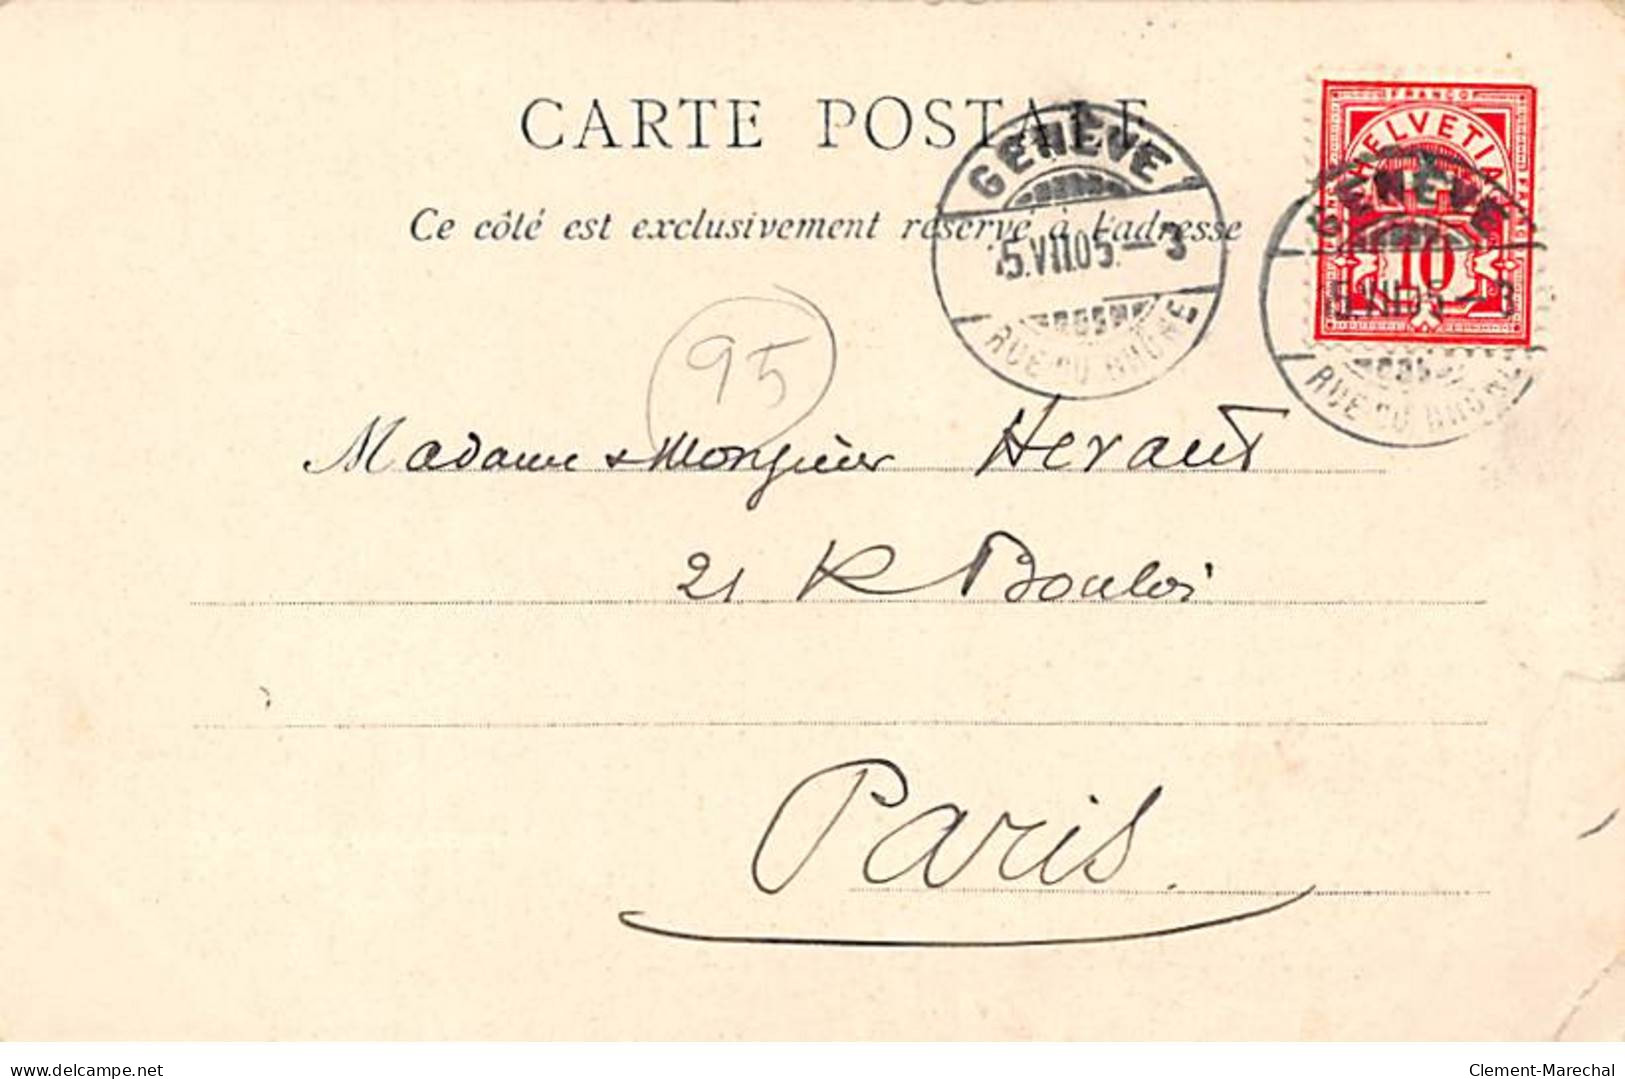 CARTE POSTALE
Ce côté est exclusivement réservé à l'adresse
GENÈVE
5.VII.05.—3
RUE DU RHÔNE
FRANCO
HELVETIA
10
GENÈVE
5.VII.05—3
RUE DU RHÔNE
95
Madame & Monsieur Heraut
21 R Bouloi
Paris.
delcampe.net
Clement-Marechal